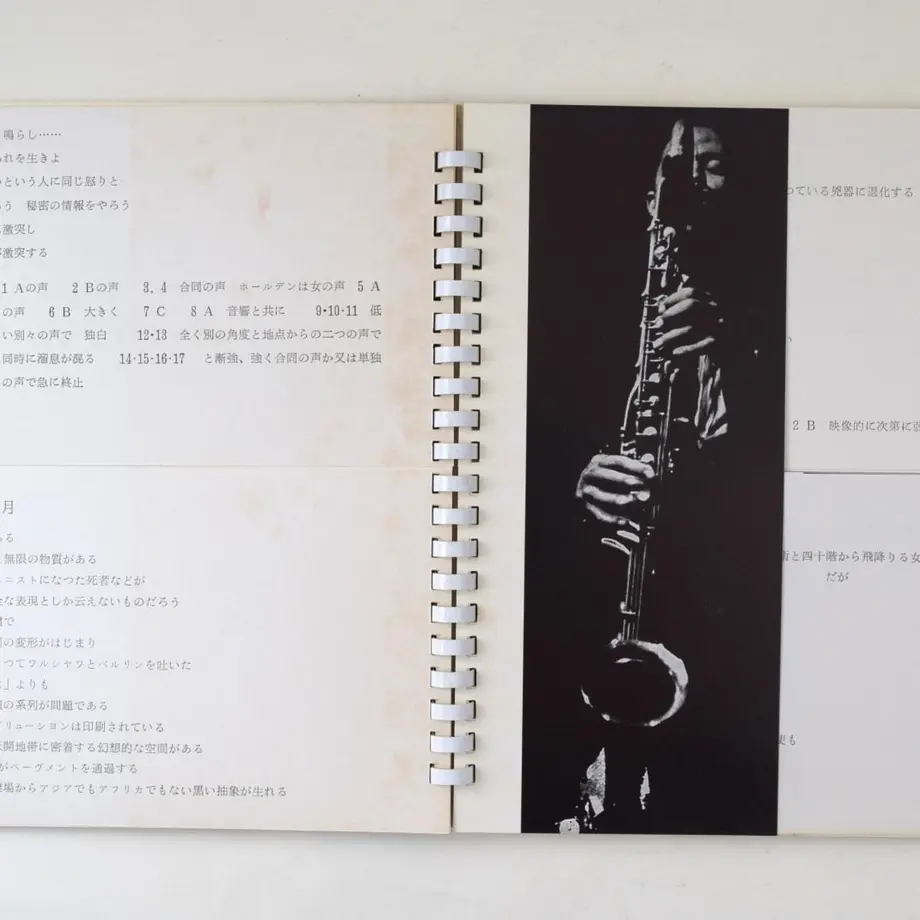 鳴らし……
れを生きよ
という人に同じ怒りと
う　秘密の情報をやろう
激突し
激突する
1 Aの声　2 Bの声　3.4 合同の声　ホールデンは女の声　5 A
の声　6 B 大きく　7 C　8 A 音響と共に　9・10・11 低
い別々の声で　独白　12・13 全く別の角度と地点からの二つの声で
同時に溜息が混る　14・15・16・17 と漸強、強く合同の声か又は単独
の声で急に終止
月
る
無限の物質がある
ニストになつた死者などが
な表現としか云えないものだろう
で
の変形がはじまり
つてワルシャワとベルリンを吐いた
」よりも
の系列が問題である
リューションは印刷されている
開地帯に密着する幻想的な空間がある
がペーヴメントを通過する
場からアジアでもアフリカでもない黒い抽象が生れる
つている兇器に退化する
2 B　映像的に次第に
と四十階から飛降りる女
だが
も